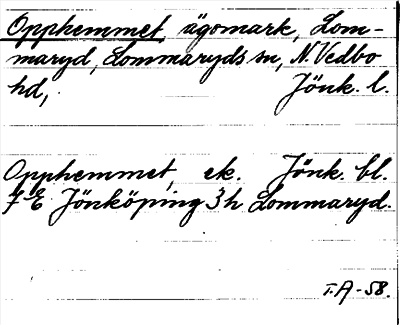 Opphemmet, ägomark, Lom-
maryd, Lommaryds sn, N. Vedbo
hd, Jönk. l.
Opphemmet, ek. Jönk. bl.
7 E Jönköping 3 h Lommaryd.
T.A-58.